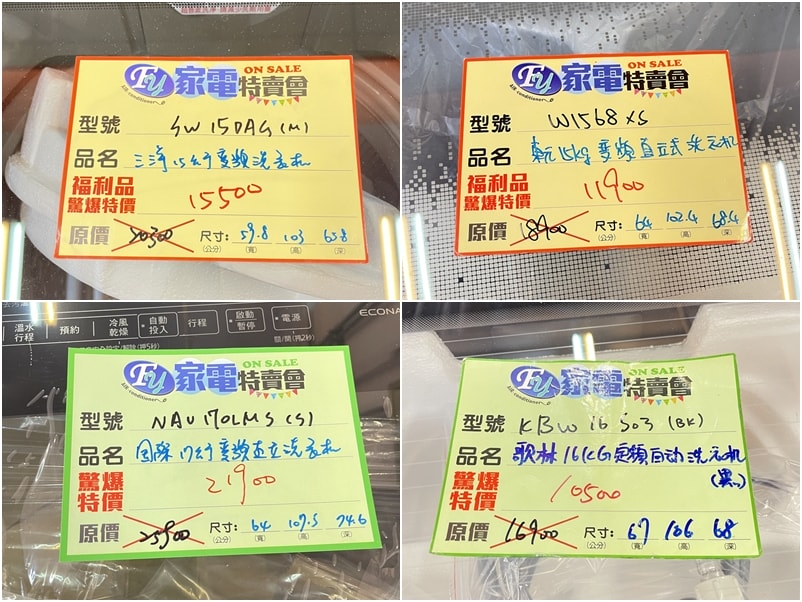 ON SALE
FU 家電特賣會
air conditioner
型號 SW 15DAG (M)
品名 三洋15公斤變頻洗衣机
福利品
驚爆特價 15500
原價 20300 尺寸: 59.8 103 63.8
(公分) (寬) (高) (深)
ON SALE
FU 家電特賣會
air conditioner
型號 W1568XS
品名 東元15kg變頻直立式洗衣机
福利品
驚爆特價 11900
原價 18900 尺寸: 64 102.4 68.4
(公分) (寬) (高) (深)
溫水行程 預約 冷風乾燥 自動投入 行程 啟動暫停 電源
關/開(押2秒)
ECONA
ON SALE
FU 家電特賣會
air conditioner
型號 NAV170LMS (S)
品名 国際17公斤變頻直立洗衣机
驚爆
特價 21900
原價 25900 尺寸: 64 107.5 74.6
(公分) (寬) (高) (深)
ON SALE
FU 家電特賣會
air conditioner
型號 KBW 16 S03 (BK)
品名 歌林16KG定頻自动洗衣机
(黑)
驚爆
特價 10500
原價 16900 尺寸: 67 106 68
(公分) (寬) (高) (深)